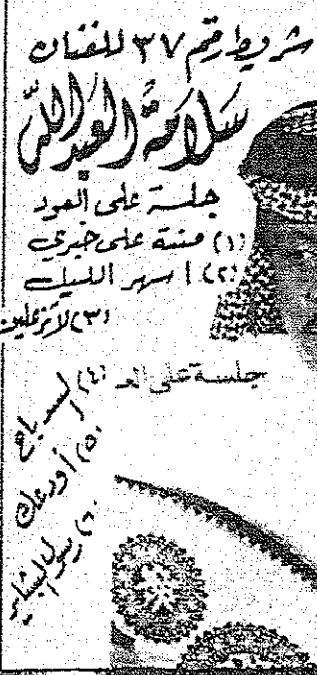 شريط رقم ٣٧ للفنان
سلامة العبدالله
جلسة على العود
(١) منتة على خبري
(٢) اسهر الليل
(٣) لا تزعلين
(٤) جلسة على
(٥) أودعك
(٦) رسول البشاير